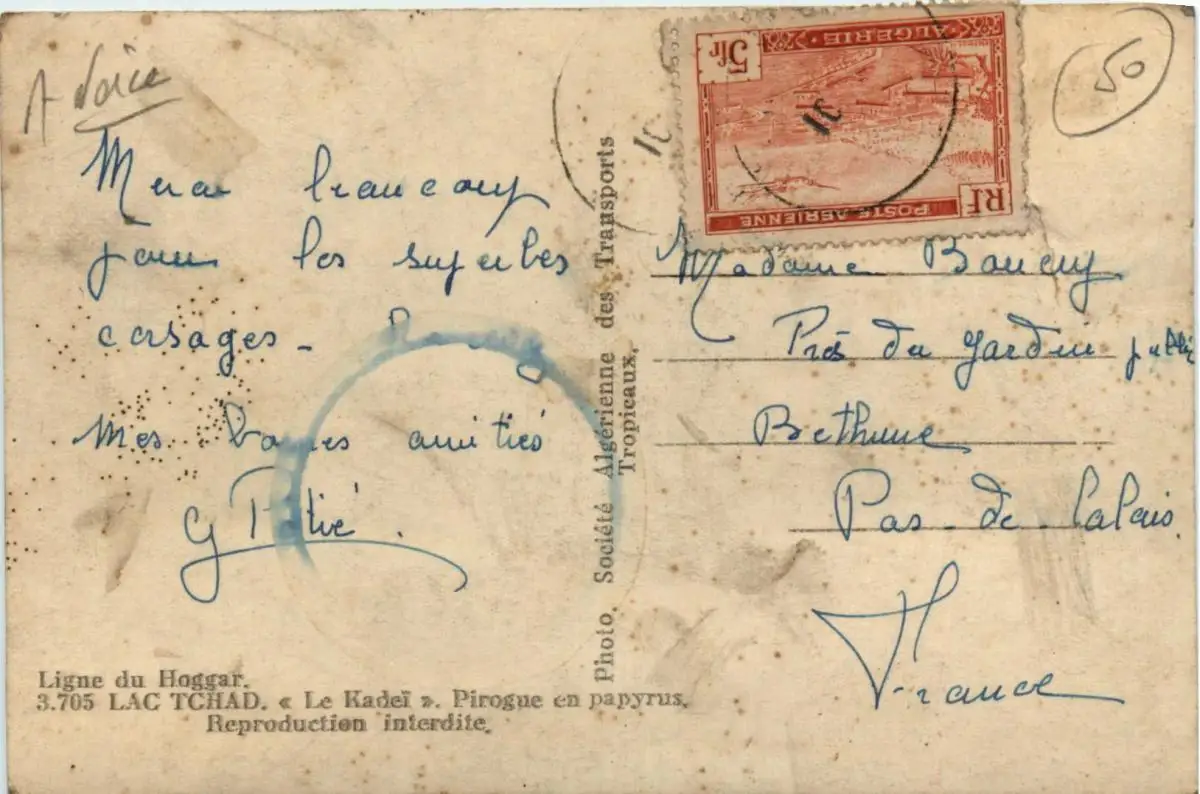 A
50
ALGERIE
5fr
POSTE AERIENNE
RF
Merci beaucoup
pour les superbes
corsages -
Mes bonnes amitiés
G
Madame
Près du Jardin public
Bethune
Pas-de-Calais
France
Photo. Société Algérienne des Transports
Tropicaux.
Ligne du Hoggar.
3.705 LAC TCHAD. « Le Kadeï ». Pirogue en papyrus.
Reproduction interdite.